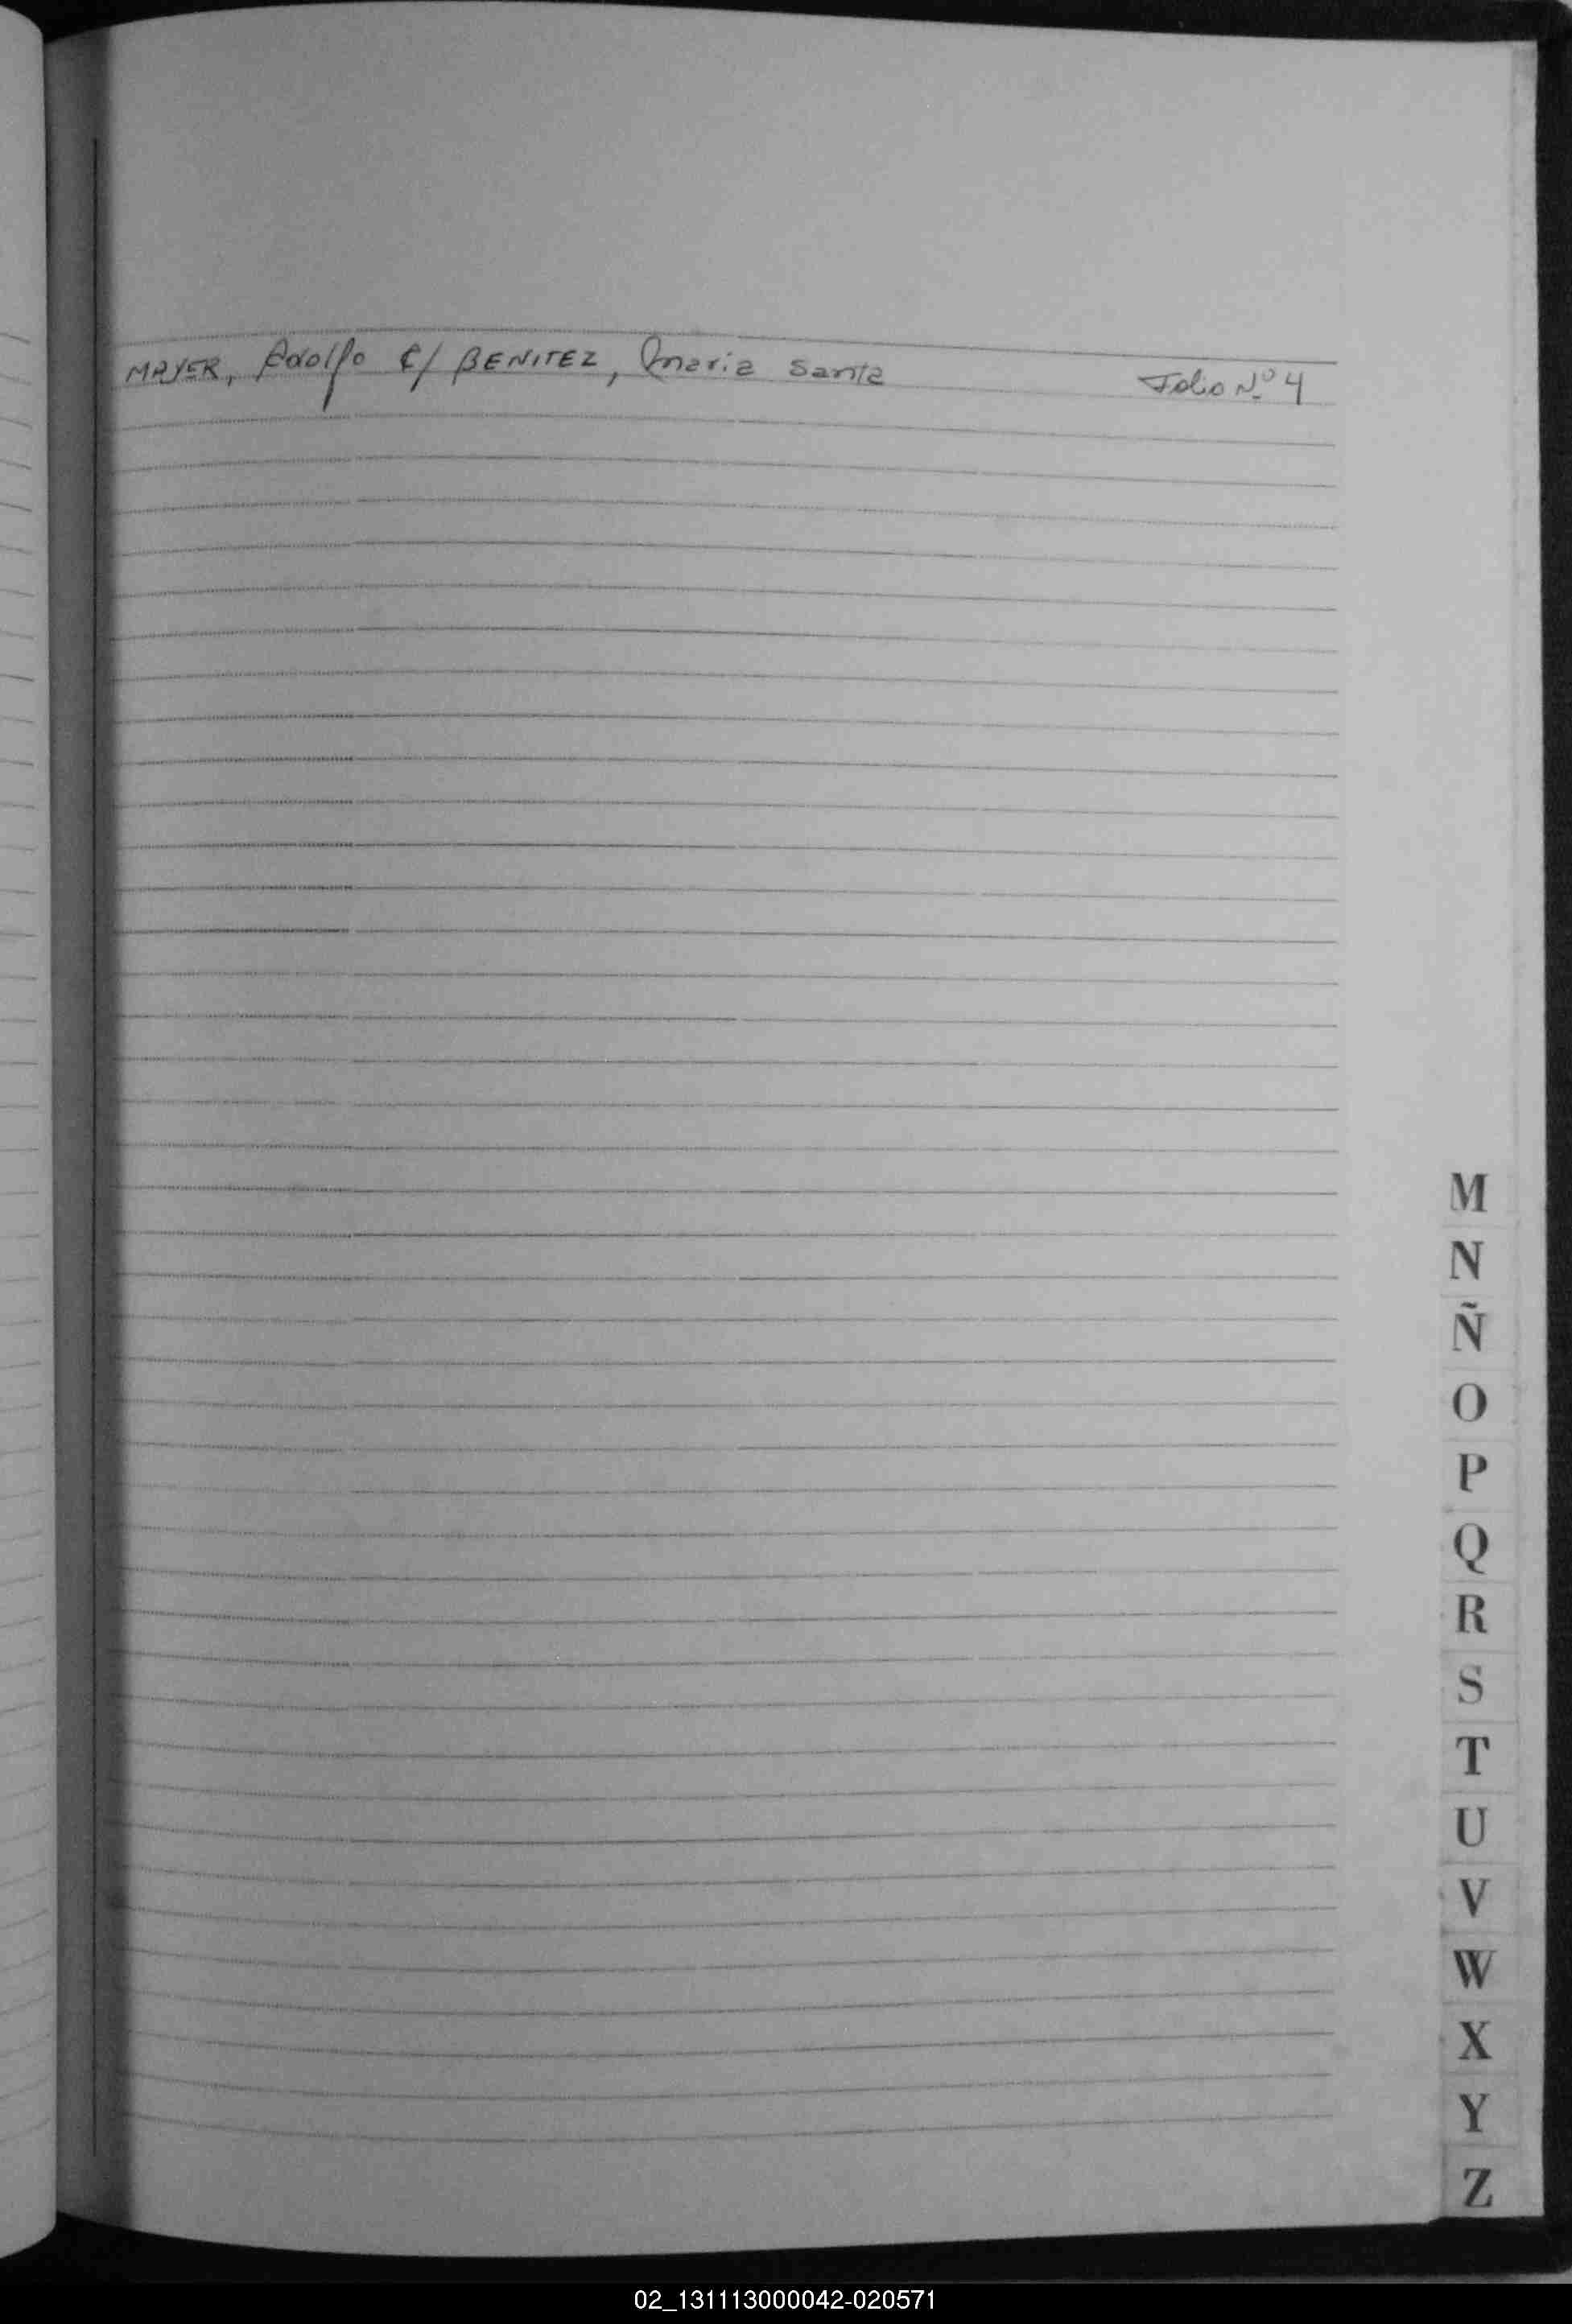 MAYER, Adolfo C/ BENITEZ, Maria Santa Folio Nº 4
M
N
Ñ
O
P
Q
R
S
T
U
V
W
X
Y
Z
02_131113000042-020571